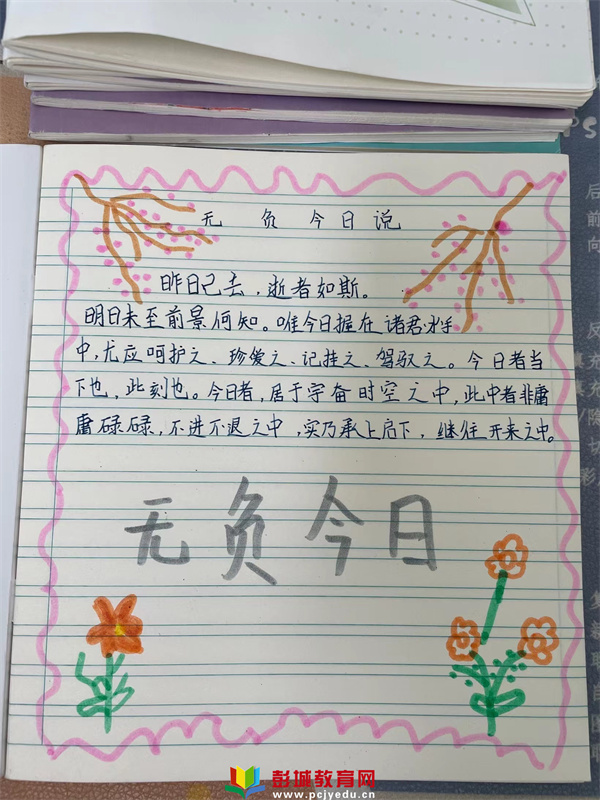 无负今日说
昨日已去，逝者如斯。
明日未至前景何知。唯今日握在诸君水手
中，尤应呵护之、珍爱之、记挂之、驾驭之。今日者当
下也，此刻也。今日者，居于宇奋时空之中，此中者非庸
庸碌碌，不进不退之中，实乃承上启下，继往开来之中。
无负今日
彭城教育网
www.pcjyedu.cn